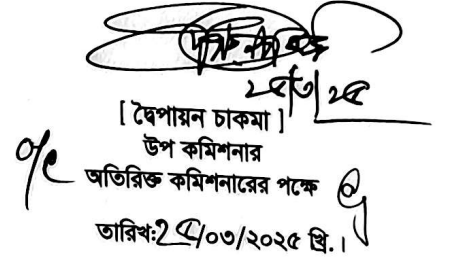 ২৫/৩/২৫
[ দ্বৈপায়ন চাকমা ]
উপ কমিশনার
অতিরিক্ত কমিশনারের পক্ষে
তারিখ:২৫/০৩/২০২৫ খ্রি.।